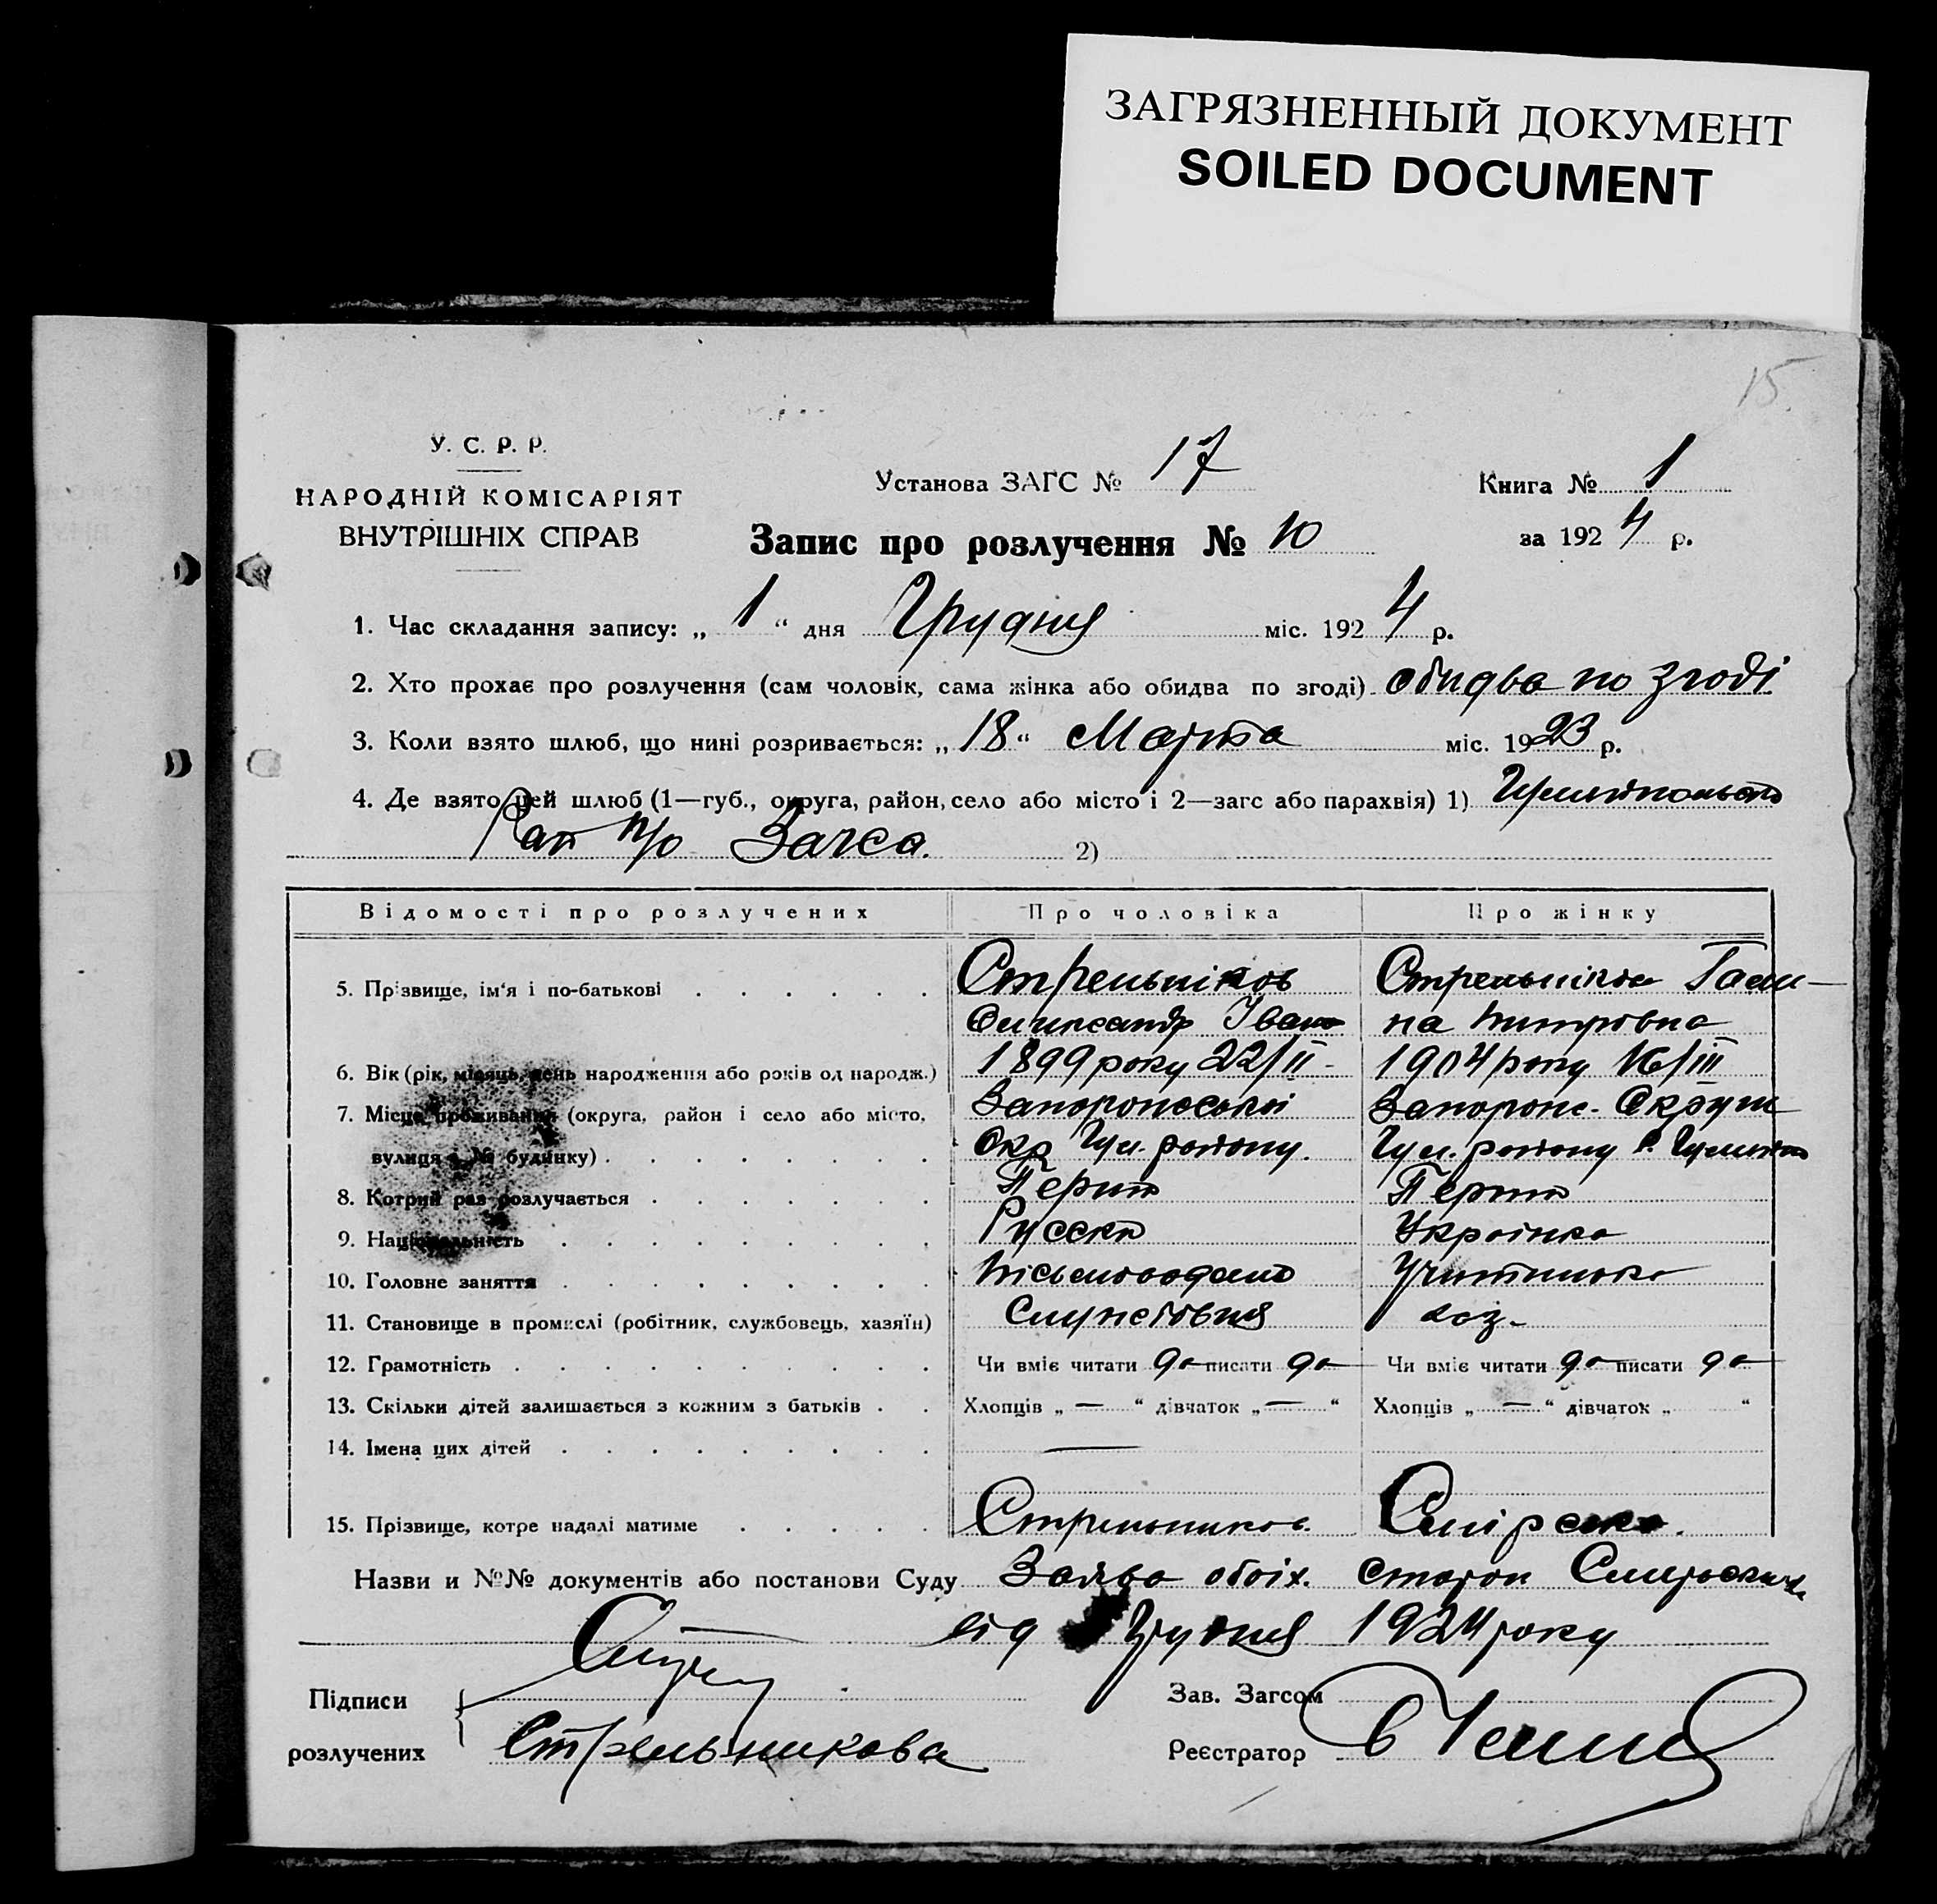 ЗАГРЯЗНЕННЫЙ ДОКУМЕНТ
SOILED DOCUMENT
15.
У. С. Р. Р.
НАРОДНІЙ КОМІСАРІЯТ
ВНУТРІШНІХ СПРАВ
Установа ЗАГС № 17
Книга № 1
Запис про розлучення № 10
за 1924 р.
1. Час складання запису: „ 1 “ дня Грудня міс. 1924 р.
2. Хто прохає про розлучення (сам чоловік, сама жінка або обидва по згоді) обидва по згоді
3. Коли взято шлюб, що нині розривається: „ 18 “ Марта міс. 1923 р.
4. Де взято цей шлюб (1—губ., округа, район, село або місто і 2—загс або парахвія) 1)
Рай п/о Загса. 2)
Відомості про розлучених Про чоловіка Про жінку
5. Прізвище, ім'я і по-батькові Стрельніков Стрельнікова
Олександр Іван
6. Вік (рік, місяць, день народження або років од народж.) 1899 року 22/II 1904 року 16/III
7. Місце проживання (округа, район і село або місто, Запорожської Запорож. Округи
вулиця і № будинку) Окр Гул. району. Гул. району
8. Котрий раз розлучається Перший Перший
9. Національність Русский Українка
10. Головне заняття Учителька
11. Становище в промислі (робітник, службовець, хазяїн)
12. Грамотність Чи вміє читати да писати да Чи вміє читати да писати да
13. Скільки дітей залишається з кожним з батьків Хлопців „ — “ дівчаток „ — “ Хлопців „ — “ дівчаток „ “
14. Імена цих дітей —
15. Прізвище, котре надалі матиме Стрельников.
Назви и №№ документів або постанови Суду Заява обоіх сторон
від Грудня 1924 року
Підписи
розлучених
Стрельникова
Зав. Загсом
Реєстратор